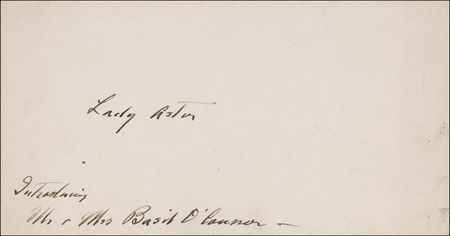 Lady Astor
Introducing
Mr & Mrs Basil O'Connor –